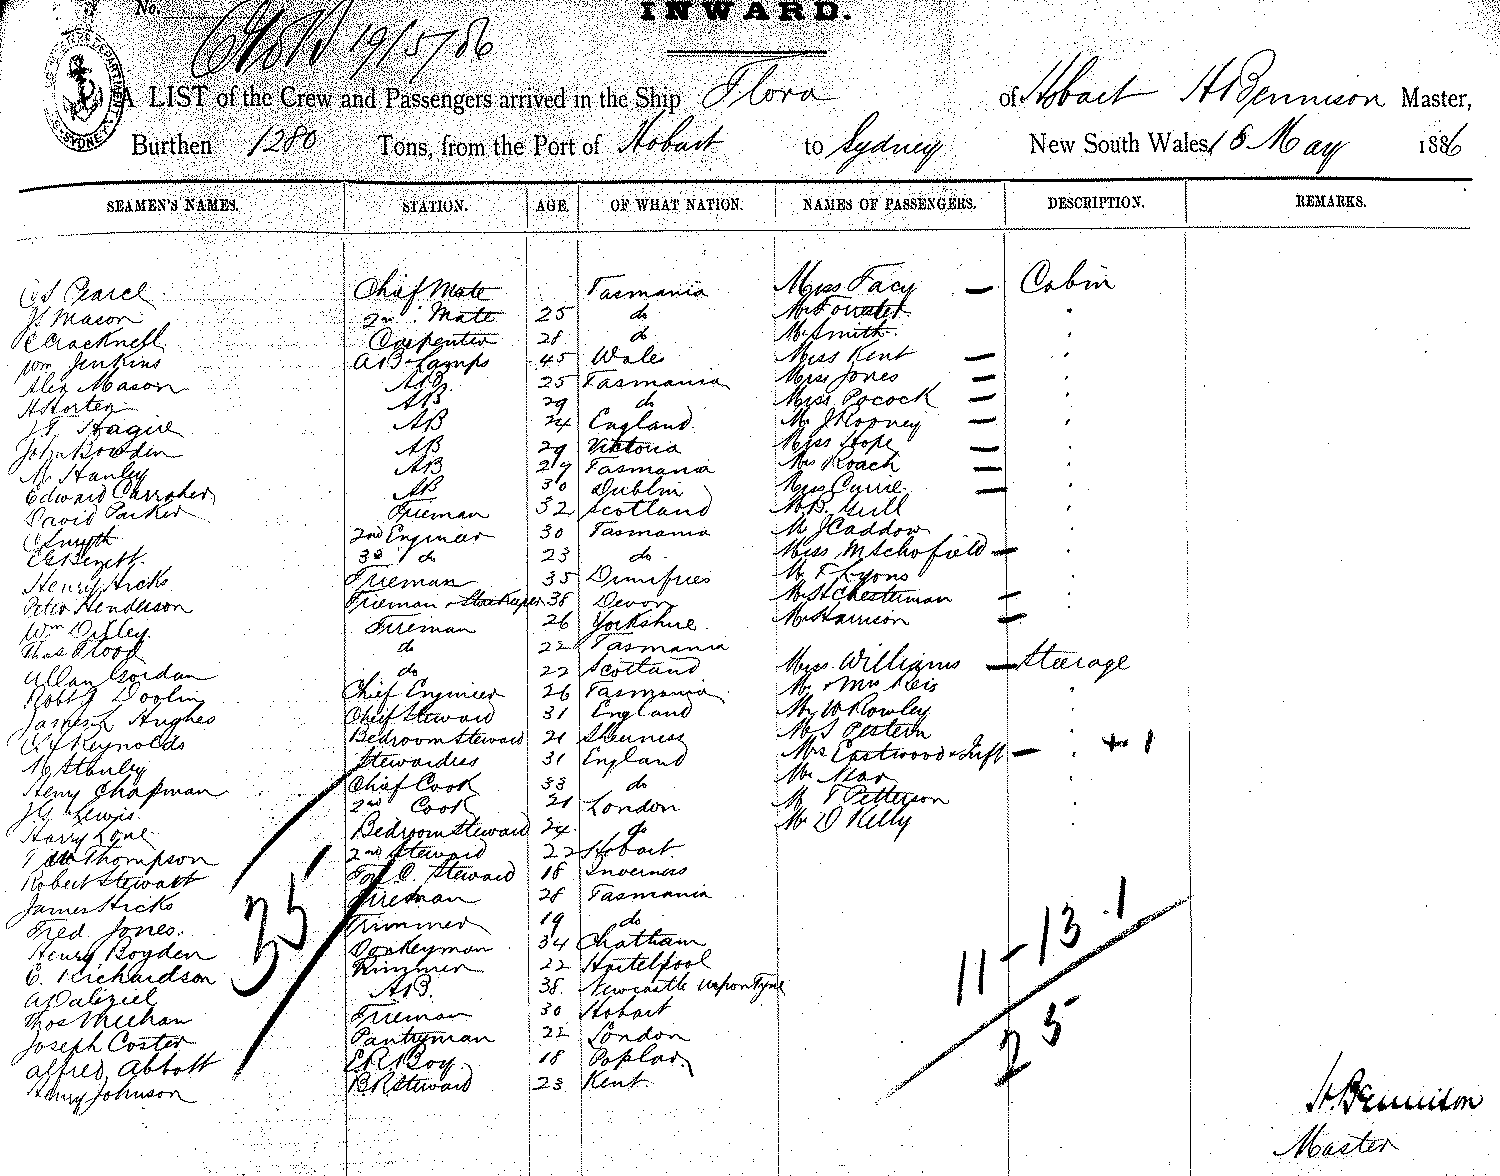 No.
INWARD.
19/5/86
A LIST of the Crew and Passengers arrived in the Ship Flora of Hobart H Bennison Master,
Burthen 1280 Tons, from the Port of Hobart to Sydney New South Wales, 18 May 1886
SEAMEN'S NAMES. STATION. AGE. OF WHAT NATION. NAMES OF PASSENGERS. DESCRIPTION. REMARKS.
Pearce Chief Mate Tasmania Miss Facy — Cabin
Js Mason 2nd Mate 25 do Mr Forrester "
C Cracknell Carpenter 28 do Mr Smith "
Wm Jenkins AB Lamps 45 Wales Miss Kent — "
Alex Mason AB 25 Tasmania Miss Jones — "
H Horter AB 29 do Miss Pocock — "
J T Hague AB 24 England Mr J Rooney — "
John Bowden AB 29 Victoria Miss Hope — "
M Hanley AB 29 Tasmania Mrs Roach — "
Edward Carragher AB 30 Dublin Miss Currie — "
David Parker Fireman 32 Scotland Mr B. Gill "
C Smyth 2nd Engineer 30 Tasmania Mr J Caddow "
3rd do 23 do Miss M Schofield — "
Henry Hicks Fireman 35 Dumfries Mr T Lyons "
Peter Henderson Fireman & Storekeeper 38 Devon Mrs H Chesterman — "
Wm Dilley Fireman 26 Yorkshire Mrs Harrison —
Thos Flood do 22 Tasmania
Allan Gordan do 22 Scotland Miss Williams — Steerage
Robt J Doolin Chief Engineer 26 Tasmania Mr & Mrs Reis "
James L Hughes Chief Steward 31 England Mr W Rowley "
Reynolds Bedroom Steward 21 Sheerness Mr S Pestern "
M Stanley Stewardess 31 England Mrs Eastwood & Inft — " + 1
Henry Chapman Chief Cook 33 do Mr Near "
J G Lewis 2nd Cook 21 London Mr T Petterson "
Harry Lane Bedroom Steward 24 do Mr D Kelly "
Thompson 2nd Steward 22 Hobart
Robert Stewart For. C. Steward 18 Inverness
James Hicks Fireman 28 Tasmania
Fred Jones. Trimmer 19 do
Henry Boyden Donkeyman 34 Chatham
E. Richardson Trimmer 22 Hartelpool
A Dalziel AB. 38 Newcastle upon Tyne
Thos Meehan Fireman 30 Hobart
Joseph Coster Pantryman 22 London
Alfred Abbott E R Boy 18 Poplar
Henry Johnson B R Steward 23 Kent
35
11 - 13 . 1
25
H. Bennison
Master